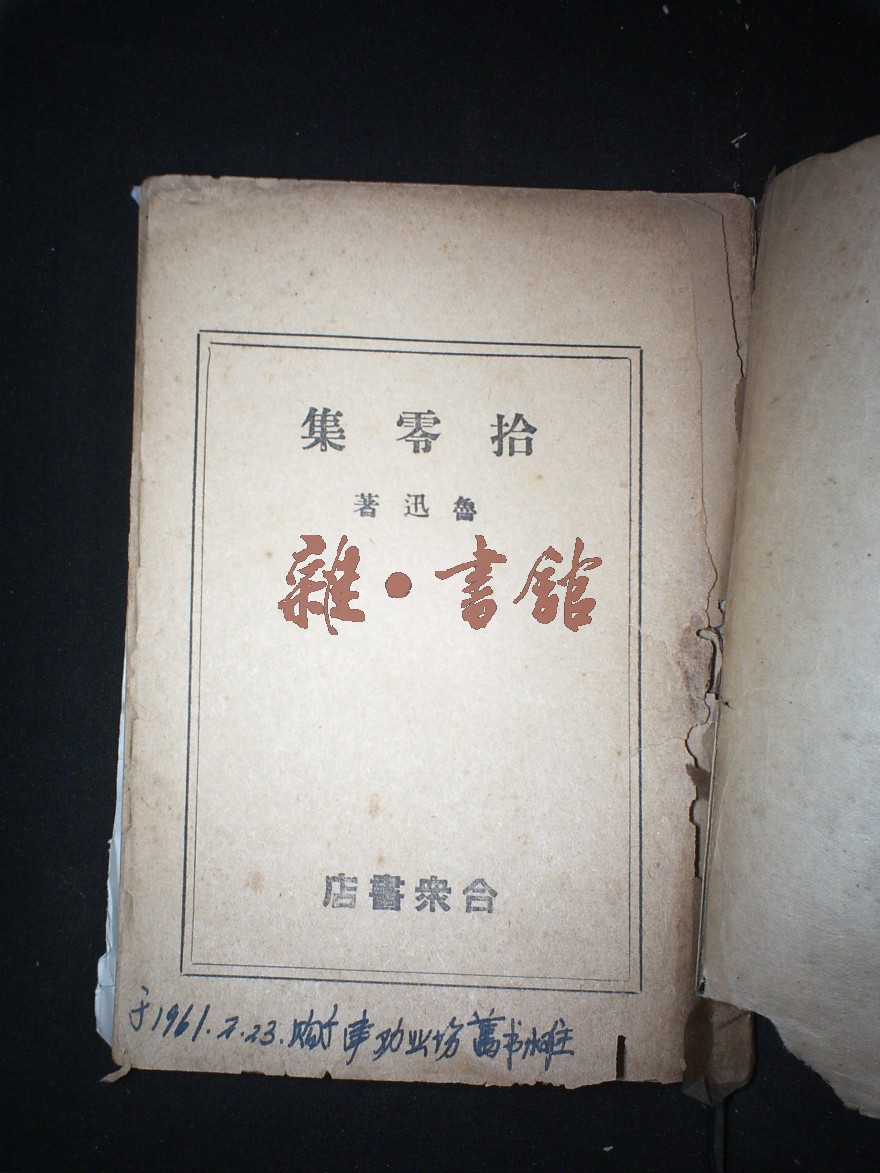 拾零集
魯迅著
雜•書館
合衆書店
于1961.2.23.购于津劝业场舊书摊